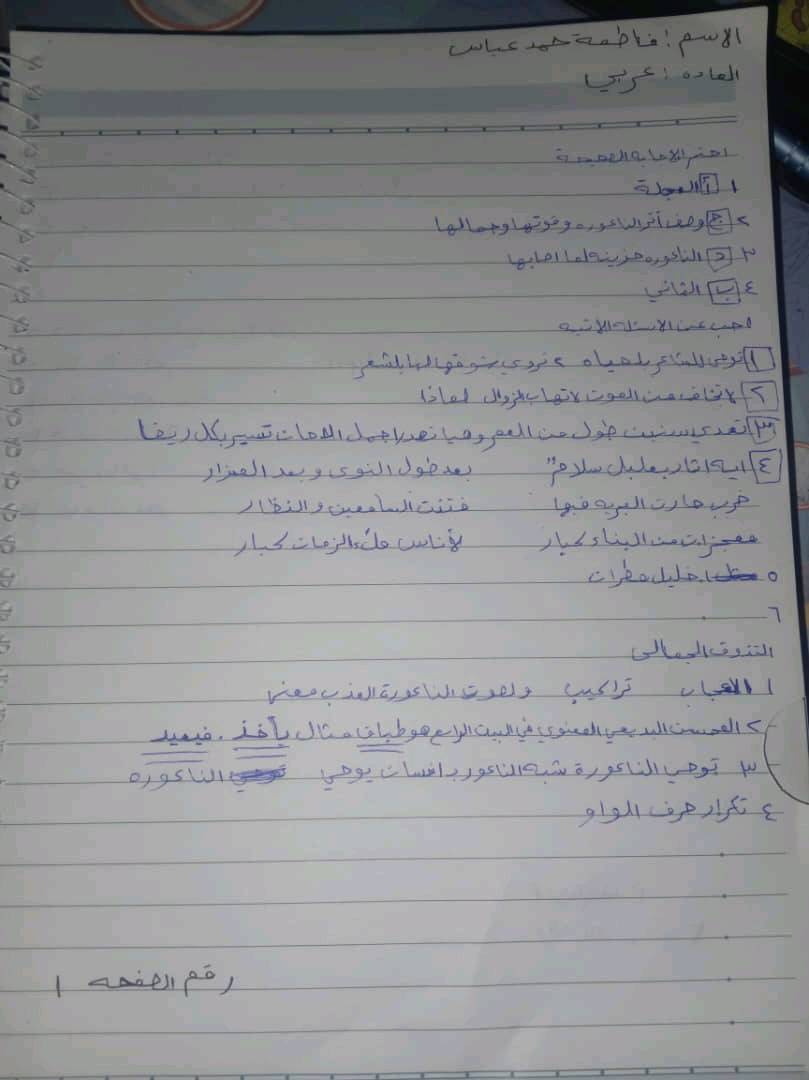 الاسم : فاطمة حمد عباس
الماده : عربي
اختر الاجابه الصحيحة
١ أ العجلة
٢ ج وصف أثر الناعوره وقوتها وجمالها
٣ د الناعوره حزينه لما اصابها
٤ ب الثاني
اجب عن الاسئله الاتيه
١ توحي للشاعر بلحياه ٢ نروي بلشعر
٢ لاتخاف من الموت لاتهاب الزوال لماذا
٣ تعدي سنين طول من العمر تسير بكل
٤ ايه اثار بعلبك سلامٌ بعد طول النوى وبعد المزار
خرب حارت البريه فيها فتنت السامعين والنظار
معجزات من البناء كبار لأناس ملء الزمان كبار
٥ خليل مطران
٦
التذوق الجمالي
١ الاعجاب تراكيب ولصوت الناعورة العذب معنها
٢ المحسن البديعي المعنوي في البيت الرابع هو طباق مثال يأخذ . فيعيد
٣ توحي الناعورة شبه الناعور بدافسان يوحي الناعوره
٤ تكرار حرف الواو
رقم الصفحه ١